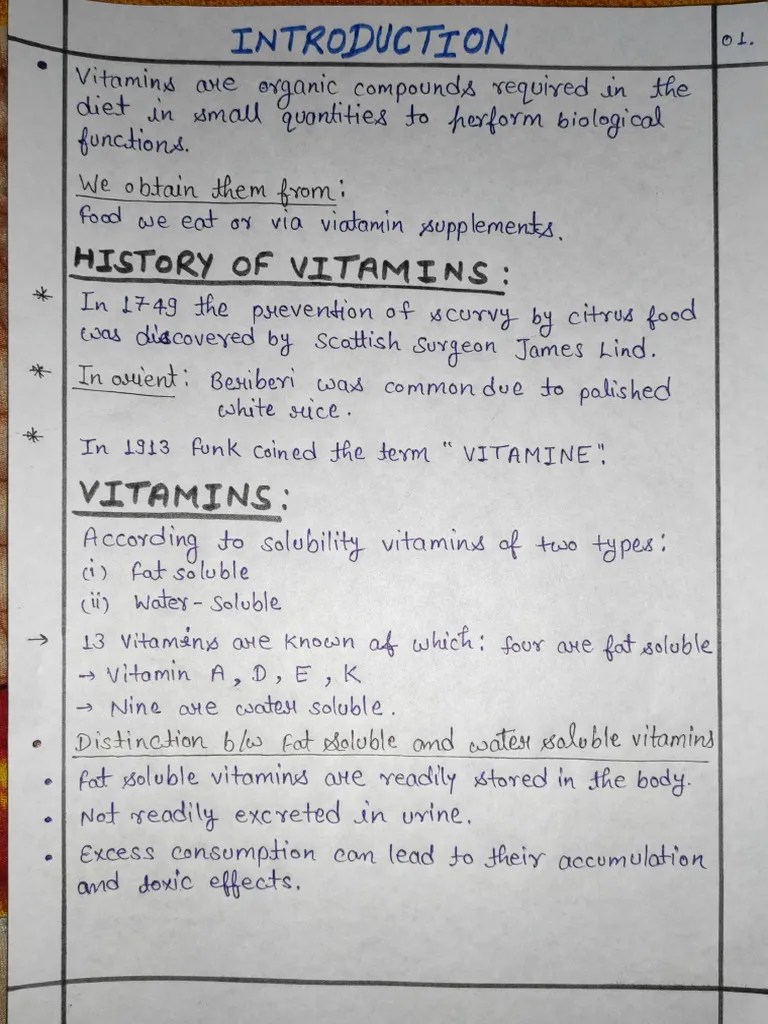 INTRODUCTION
01.
• Vitamins are organic compounds required in the
diet in small quantities to perform biological
functions.
We obtain them from:
food we eat or via viatamin supplements.
HISTORY OF VITAMINS:
* In 1749 the prevention of scurvy by citrus food
was discovered by Scottish Surgeon James Lind.
* In orient: Beriberi was common due to polished
white rice.
* In 1913 funk coined the term "VITAMINE".
VITAMINS:
According to solubility vitamins of two types:
(i) fat soluble
(ii) Water-Soluble
→ 13 Vitamins are known of which: four are fat soluble
→ Vitamin A, D, E, K
→ Nine are water soluble.
• Distinction b/w fat soluble and water soluble vitamins
• fat soluble vitamins are readily stored in the body.
• Not readily excreted in urine.
• Excess consumption can lead to their accumulation
and toxic effects.